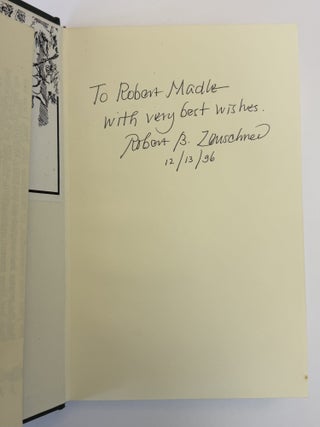 To Robert Madle
with very best wishes.
Robert B. Zeuschner
12/13/96